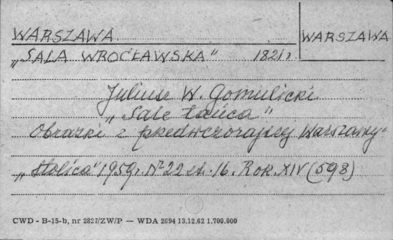 WARSZAWA WARSZAWA
„SALA WROCŁAWSKA" 1821 r
Juliusz W. Gomulicki
„Sale tańca"
Obrazki z przedwczorajszej Warszawy
„Stolica" 1959 r. Nr 22 st. 16. Rok XIV (598)
CWD - B-15-b, nr 2827/ZW/P — WDA 2694 13.12.62 1.700.000